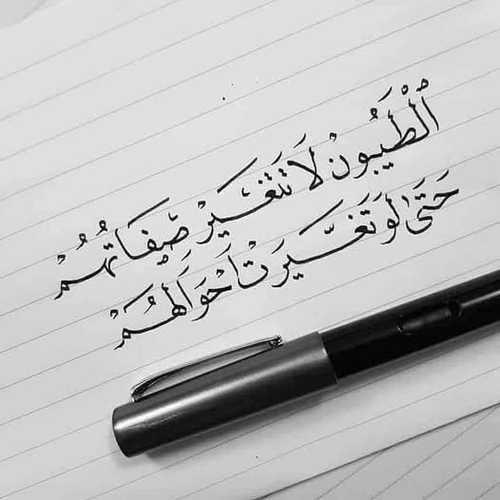 الْطَيّبُونْ لَا تَتَغَيَرْ صِفَاتهُمُ
حَتَىٰ لَوْ تَغَيَّرَتْ احَوَالَهُمْ